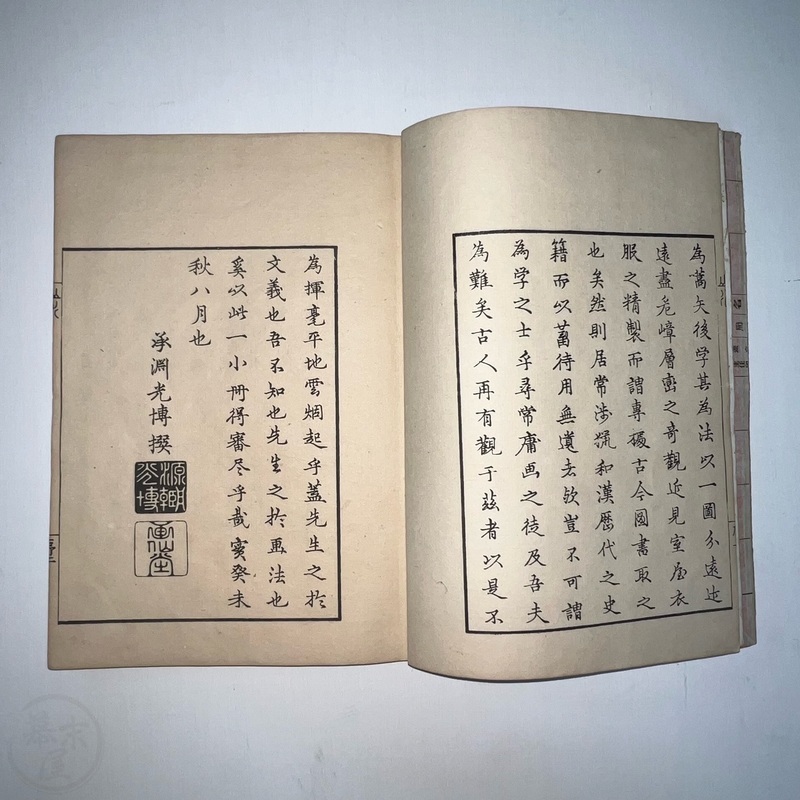 為蒿矢後学甚為法以一圖分遠近
遠盡危嶂層巒之奇觀近見室屋衣
服之精製而謂専磤古今圖書取之
也矣然則居常涉猟和漢歴代之史
籍而以蓄待用無遺去欤豈不可謂
為学之士乎尋常庸画之徒及吾夫
為難矣古人再有觀于茲者以是不
為揮毫平地雲烟起乎蓋先生之於
文義也吾不知也先生之於画法也
奚以此一小冊得審尽乎哉寳癸未
秋八月也
承淵光博撰
源朝
光博